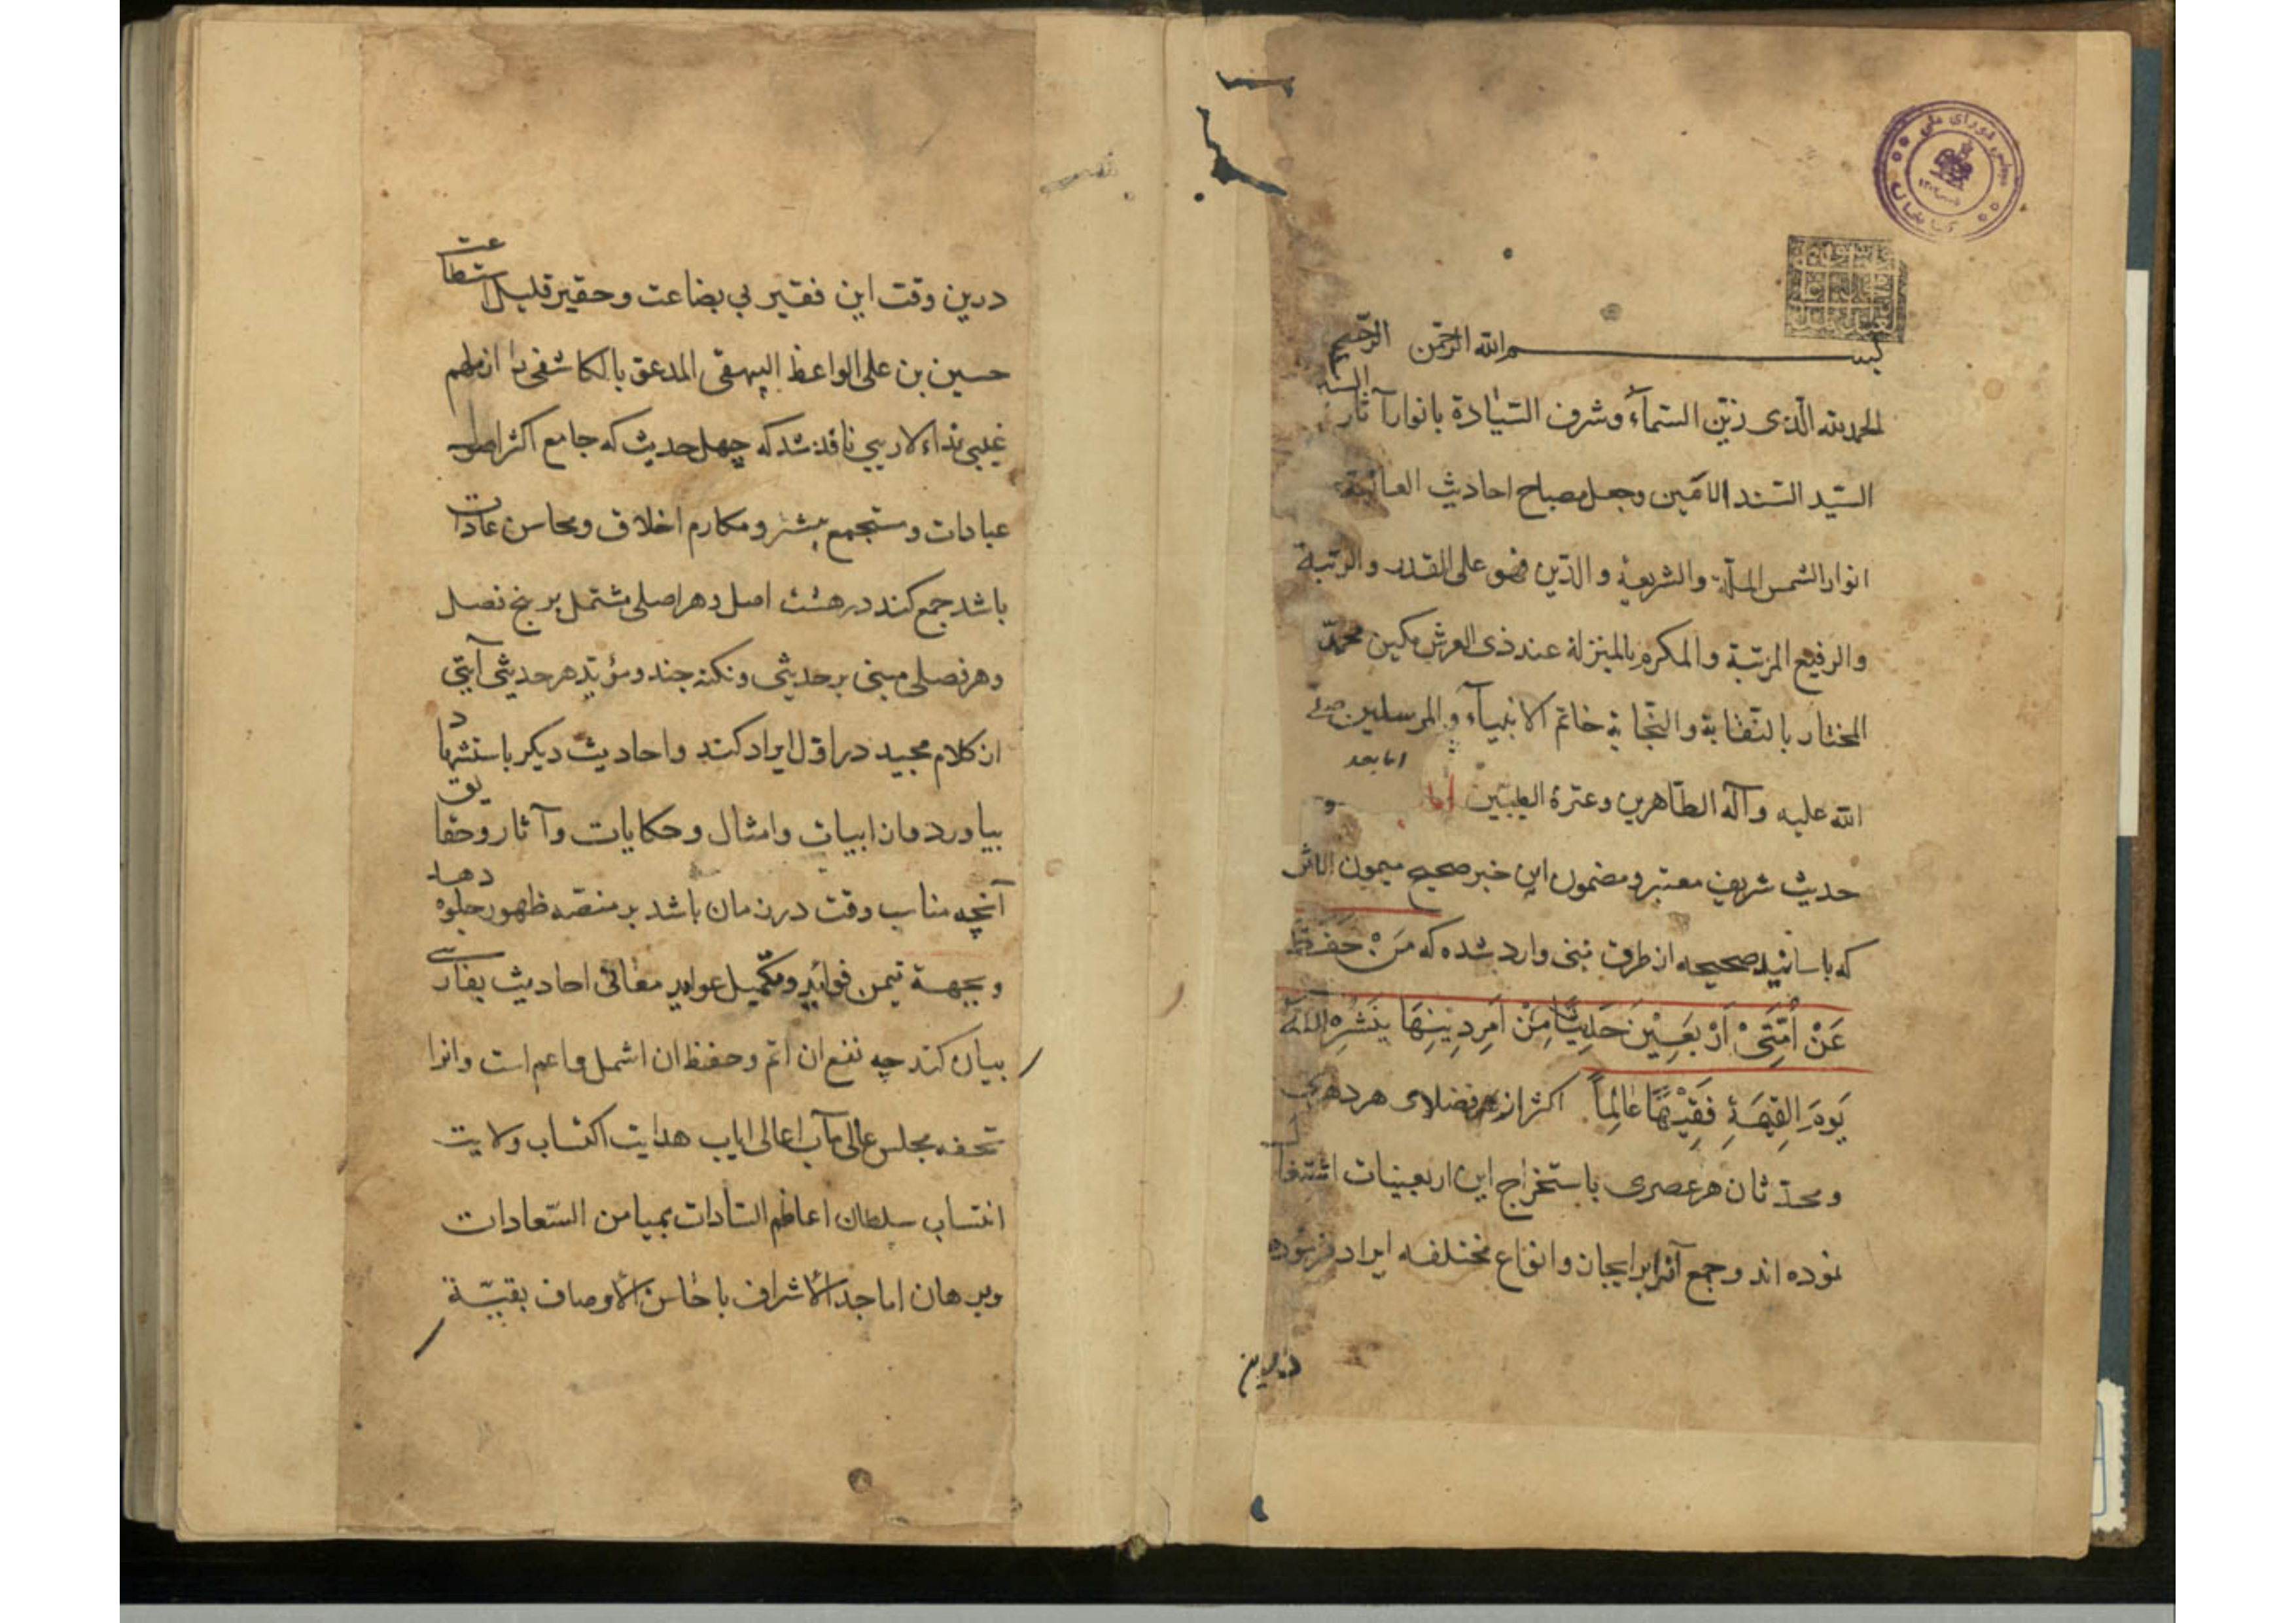 بسم الله الرحمن الرحیم
الحمد لله الّذی زیّن السّمآء و شرف السّیٰادة بانوار آثار السیّد
السّیّد السّند الامین وجعل مصباح احادیث
انوار الشمس الملّة والشریعة والدّین فهو علی القدر والرتبة
والرفیع المرتبة والمکرم بالمنزلة عند ذی العرش مکین محمّد
المختار بالنّقابة والنّجابة خاتم الانبیآء والمرسلین صلی
اما بعد
الله علیه وآله الطّاهرین وعترة الطیبّین اما
حدیث شریف معتبر و مضمون این خبر صحیح میمون الاثر
که باسانید صحیحه از طرق نبی وارد شده که مَنْ حَفَظَ
عَنْ اُمَّتِیْ اَرْبَعِیْنَ حَدِیثًا مِنْ اَمْرِ دِینِهَا یَنْشُرِهِ اللهُ
یَوْمَ الِقیٰمَةِ فَقِیْهًا عَالِماً اکثر از فضلای هر دهری
و محدّثان هر عصری باستخراج این اربعینیات اشتغال
نموده اند و جمع آنرا بر ایجان و انواع مختلفه ایراد فرموده
درین
درین وقت این فقیر بی بضاعت و حقیر قلیل استطاعت
حسین بن علی الواعظ البیهقی المدعو بالکاشفی را از ملهم
غیبی نداء لا ریبی نافذ شد که چهل حدیث که جامع اکثر اصول
عبادات و مستجمع بیشتر و مکارم اخلاق و محاسن عادات
باشد جمع کند در هشت اصل و هر اصلی مشتمل بر پنج فصل
و هر فصلی مبنی بر حدیثی و نکته چند و مؤیّد هر حدیثی آیتی
از کلام مجید در اوّل ایراد کند و احادیث دیکر باستشهاد
بیاورد و از ابیات و امثال و حکایات و آثار و حقایق
آنچه مناسب وقت در زمان باشد بر منصّه ظهور جلوه دهد
و بجهة تیمن فواید و تکمیل عواید معانی احادیث بفارسی
بیان کند چه نفع ان اتم و حفظ ان اشمل و اعم است و انرا
تحفه مجلس عالی مآب اعالی ایاب هدایت اکتساب ولایت
انتساب سلطان اعاظم السّادات بمیامن السّعادات
و برهان اماجد الاشراف باحاسن الاوصاف بقیّة